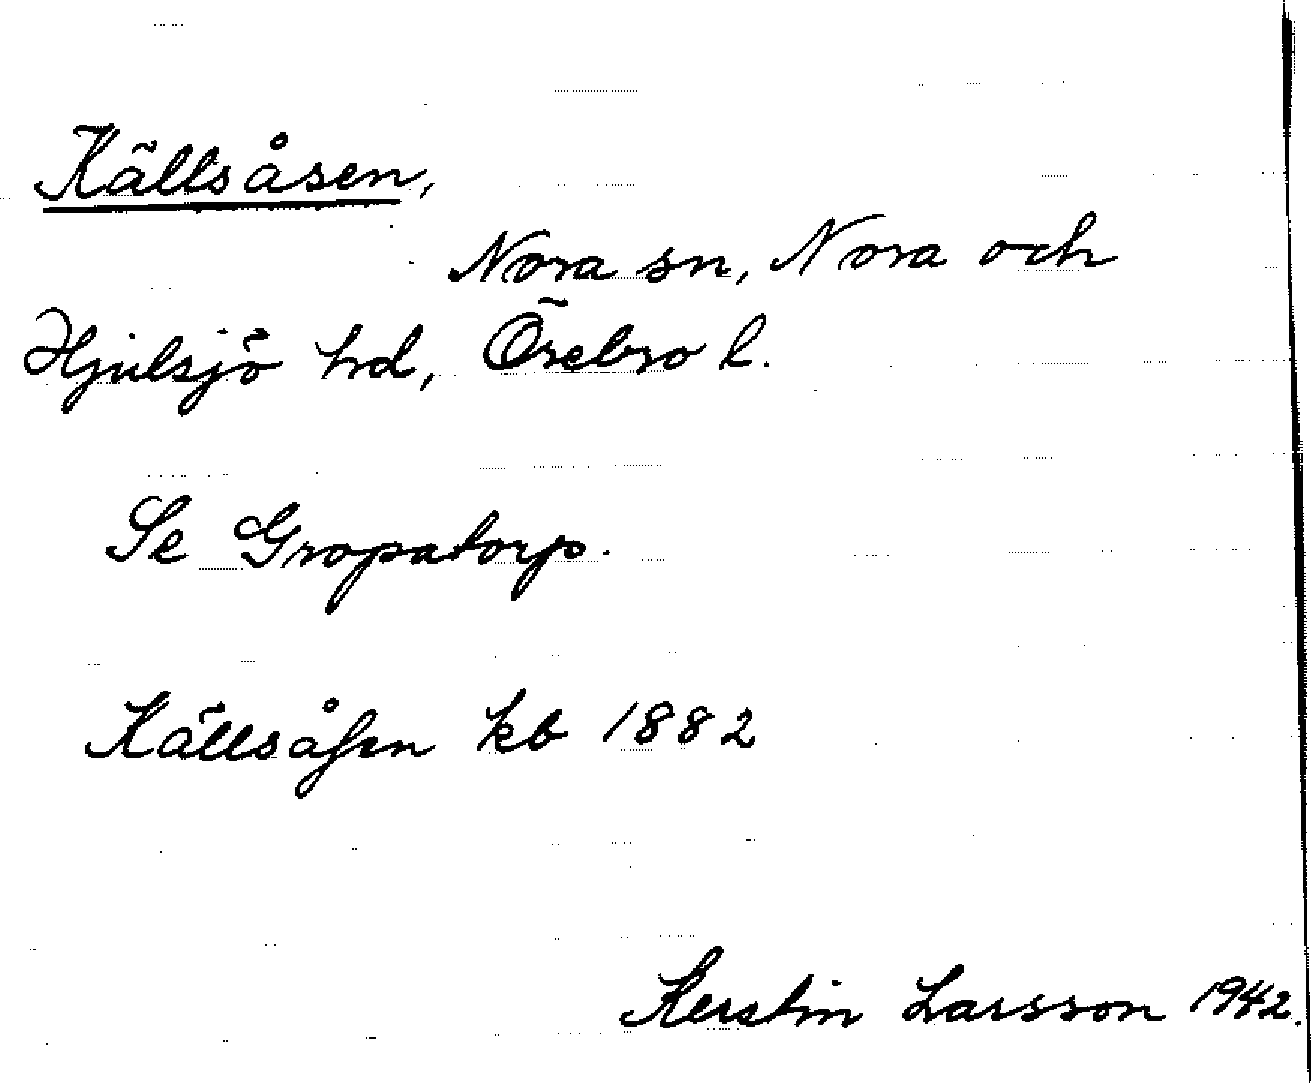 Källsåsen,
Nora sn, Nora och
Hjulsjö hd, Örebro l.
Se Gropatorp.
Källsåſen kb 1882
Kerstin Larsson 1942.